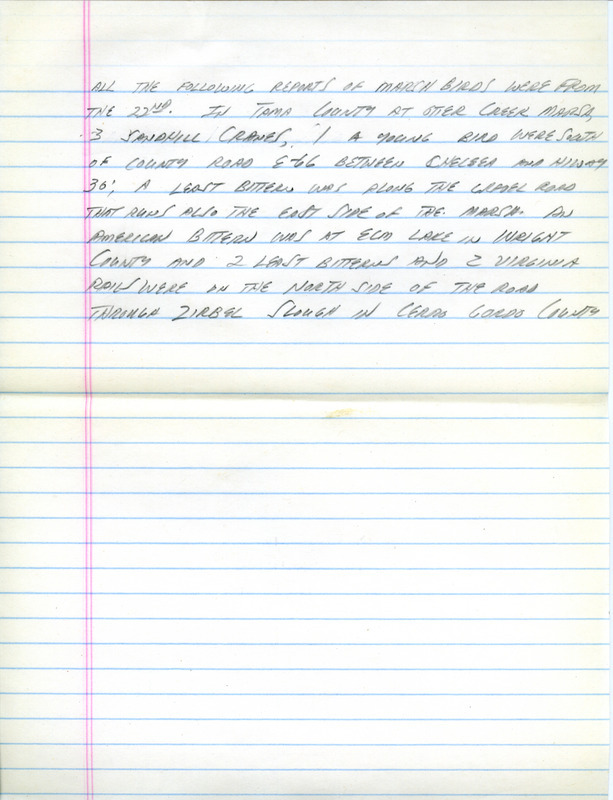 ALL THE FOLLOWING REPORTS OF MARSH BIRDS WERE FROM
THE 22ND. IN TAMA COUNTY AT OTTER CREEK MARSH,
3 SANDHILL CRANES, 1 A YOUNG BIRD WERE SOUTH
OF COUNTY ROAD E-66 BETWEEN CHELSEA AND HIWAY
30; A LEAST BITTERN WAS ALONG THE GRAVEL ROAD
THAT RUNS ALSO THE EAST SIDE OF THE MARSH. AN
AMERICAN BITTERN WAS AT ELM LAKE IN WRIGHT
COUNTY AND 2 LEAST BITTERNS AND 2 VIRGINIA
RAILS WERE ON THE NORTH SIDE OF THE ROAD
THROUGH ZIRBEL SLOUGH IN CERRO GORDO COUNTY